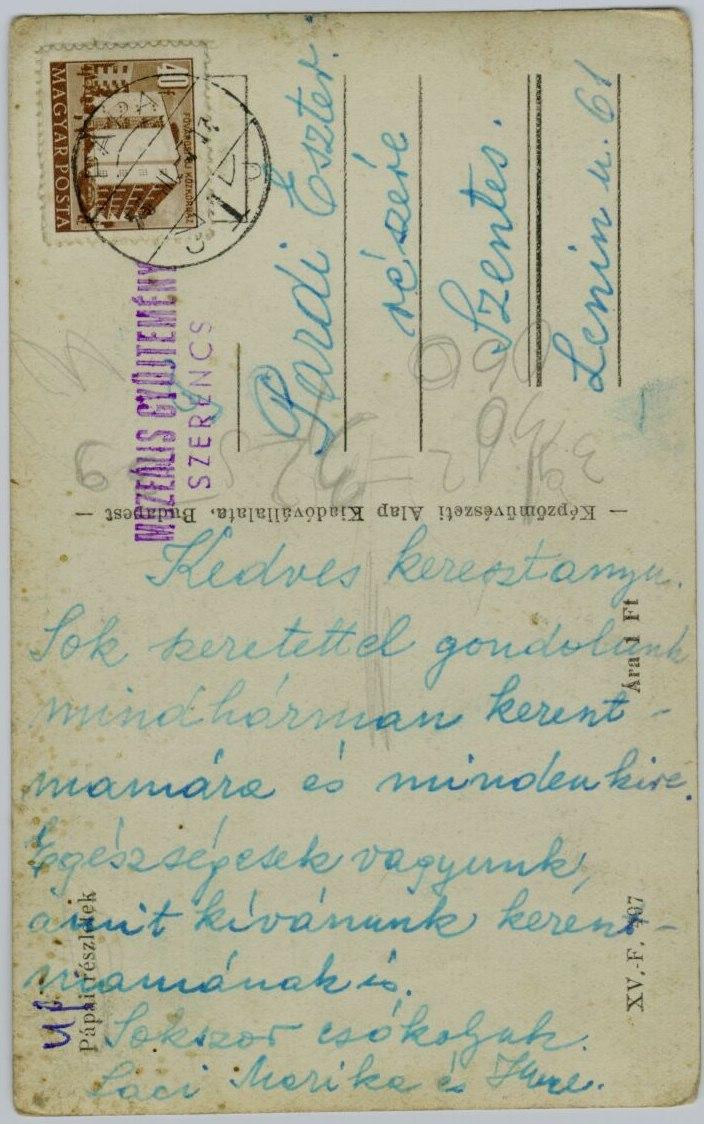 40f
MAGYAR POSTA
FŐVÁROSI KÖZKÓRHÁZ
PÁPA
MUZEÁLIS GYŰJTEMÉNY
SZERENCS
Pardi Eszter.
részére
Szentes.
Lenin u. 61
Képzőművészeti Alap Kiadóvállalata, Budapest
Kedves keresztanyu.
Sok szeretettel gondolunk
mindhárman kereszt-
mamára és mindenkire.
Egészségesek vagyunk,
amit kívánunk kereszt-
mamának is.
Sokszor csókoljuk.
Laci Marika és Imre.
Ára 1 Ft
XV.-F. 497
Pápai részletek